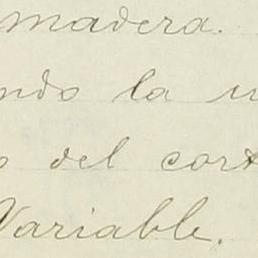 madera.
ndo la
del cort
Variable.